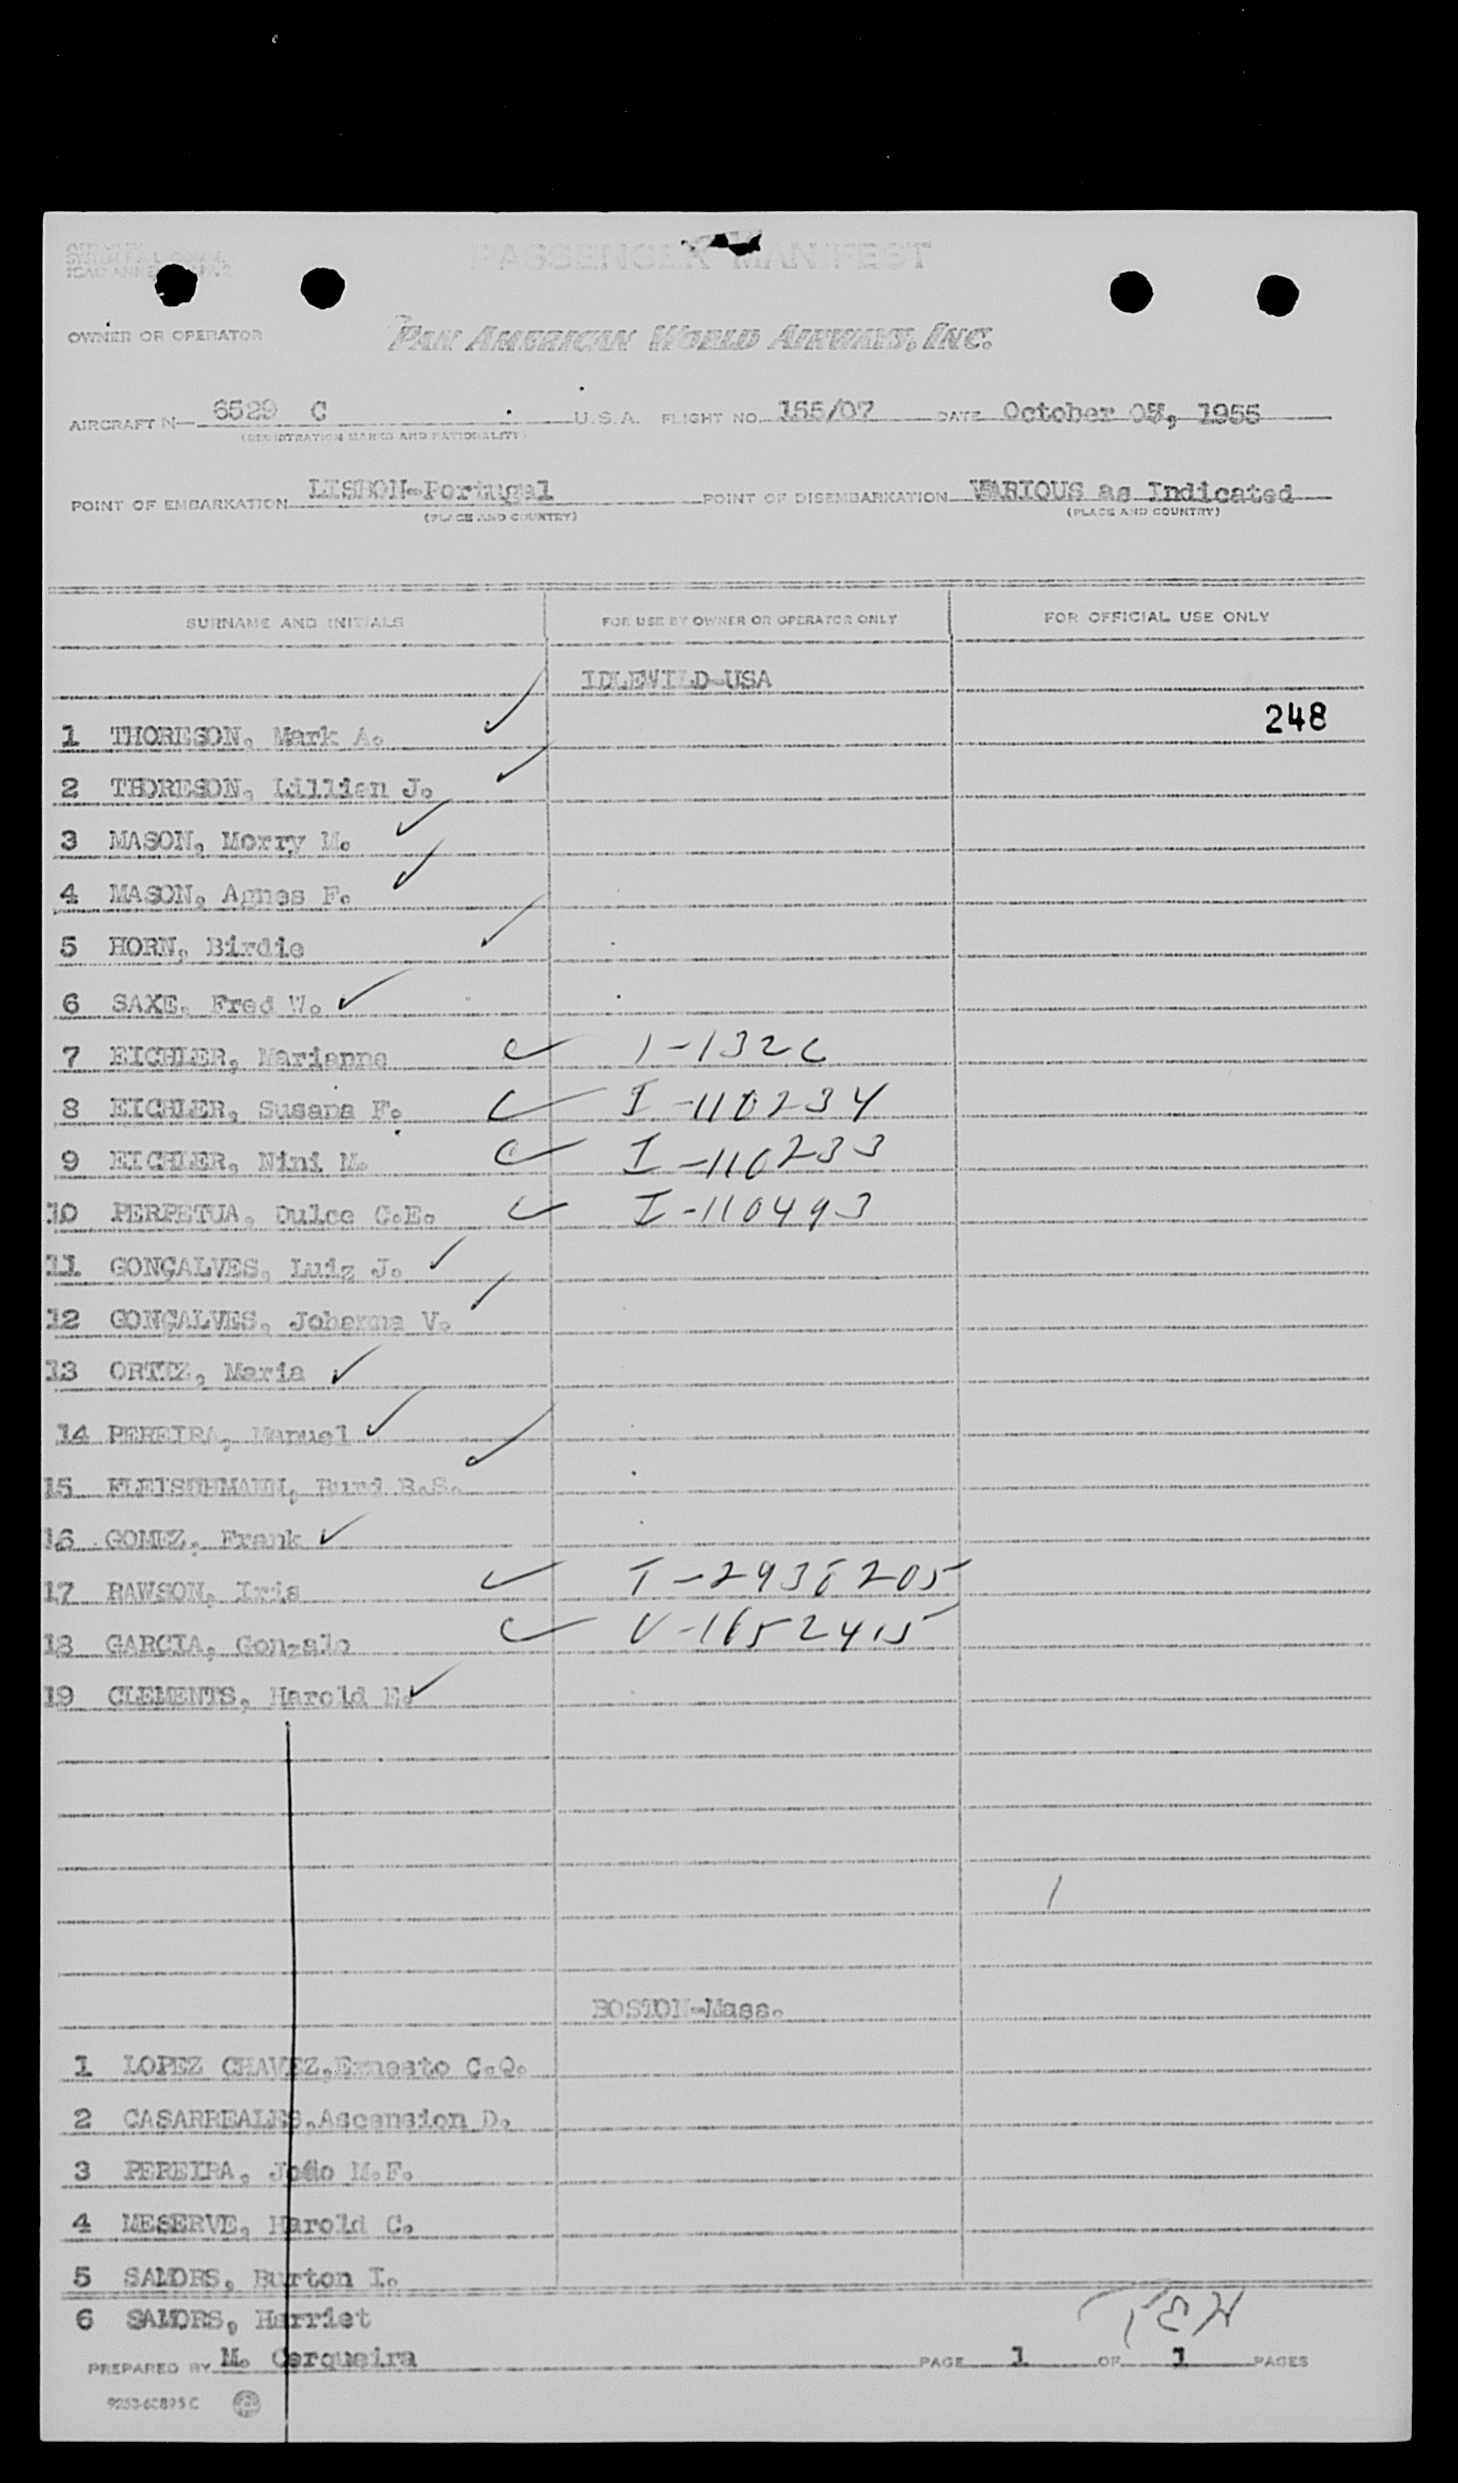 PASSENGER MANIFEST
OWNER OR OPERATOR PAN AMERICAN WORLD AIRWAYS, INC.
AIRCRAFT N- 6529 C U.S.A. FLIGHT NO. 155/07 DATE October 05, 1955
(REGISTRATION MARKS AND NATIONALITY)
POINT OF EMBARKATION LISBON-Portugal POINT OF DISEMBARKATION VARIOUS as Indicated
(PLACE AND COUNTRY) (PLACE AND COUNTRY)
SURNAME AND INITIALS FOR USE BY OWNER OR OPERATOR ONLY FOR OFFICIAL USE ONLY
IDLEWILD-USA
248
1 THORESON, Mark A.
2 THORESON, Lillian J.
3 MASON, Morry M.
4 MASON, Agnes F.
5 HORN, Birdie
6 SAXE, Fred W.
7 EICHLER, Marianne I-1326
8 EICHLER, Susana F. I-110234
9 EICHLER, Nini M. I-110233
10 PERPETUA, Dulce C.E. I-110493
11 GONÇALVES, Luiz J.
12 GONÇALVES, Johanna V.
13 ORTIZ, Maria
14 PEREIRA, Manuel
15 FLEISCHMANN, Burd B.S.
16 GOMEZ, Frank
17 RAWSON, Iris I-2938205
18 GARCIA, Gonzalo V-1652415
19 CLEMENTS, Harold E.
BOSTON-Mass.
1 LOPEZ CHAVEZ, Ernesto C.Q.
2 CASARREALES, Ascension D.
3 PEREIRA, João M.F.
4 MESERVE, Harold C.
5 SAMORS, Burton I.
6 SAMORS, Harriet
PREPARED BY M. Cerqueira PAGE 1 OF 1 PAGES